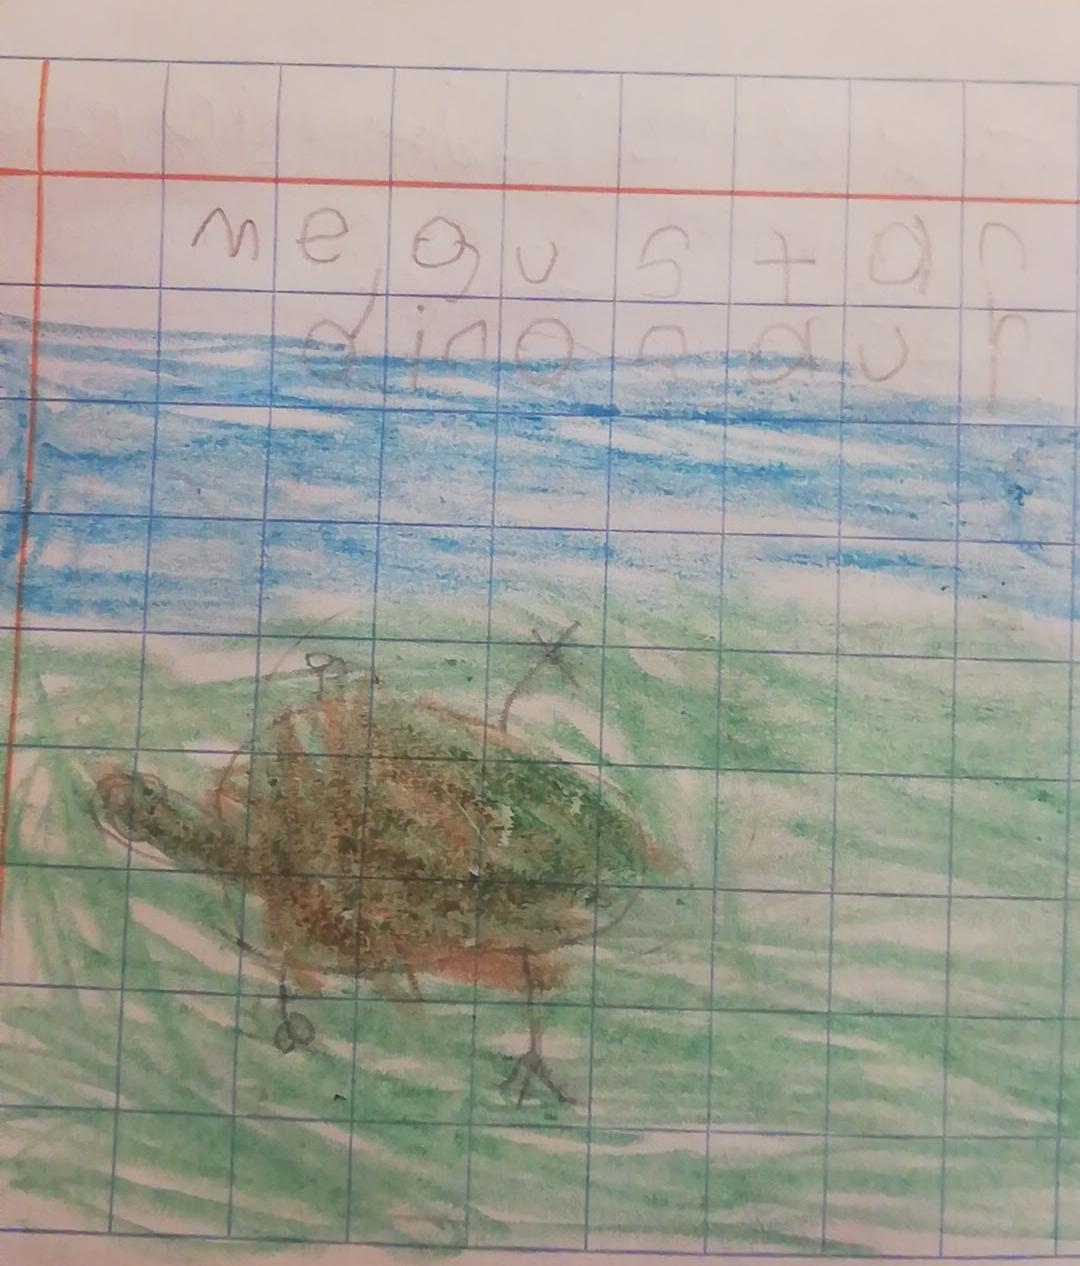 me gustan
dinosaur